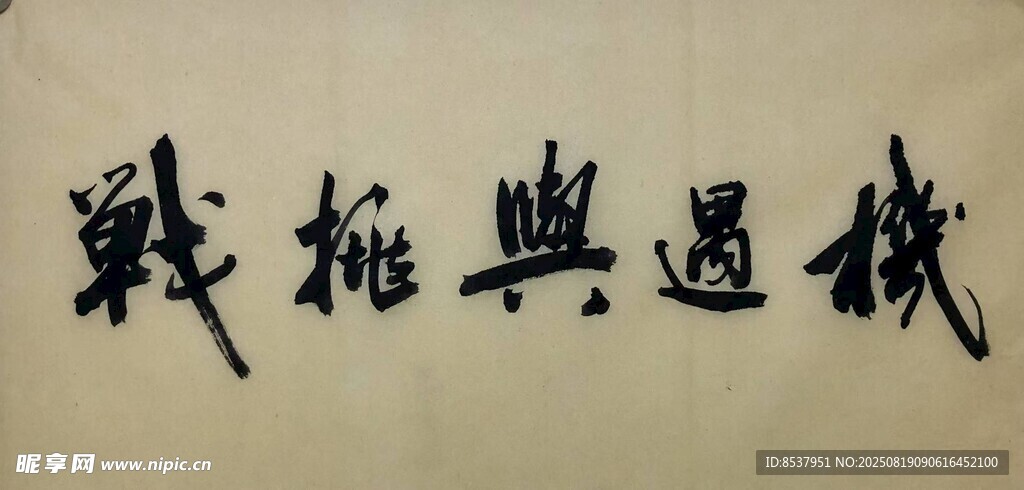 機遇與挑戰
昵享网 www.nipic.cn
ID:8537951 NO:20250819090616452100